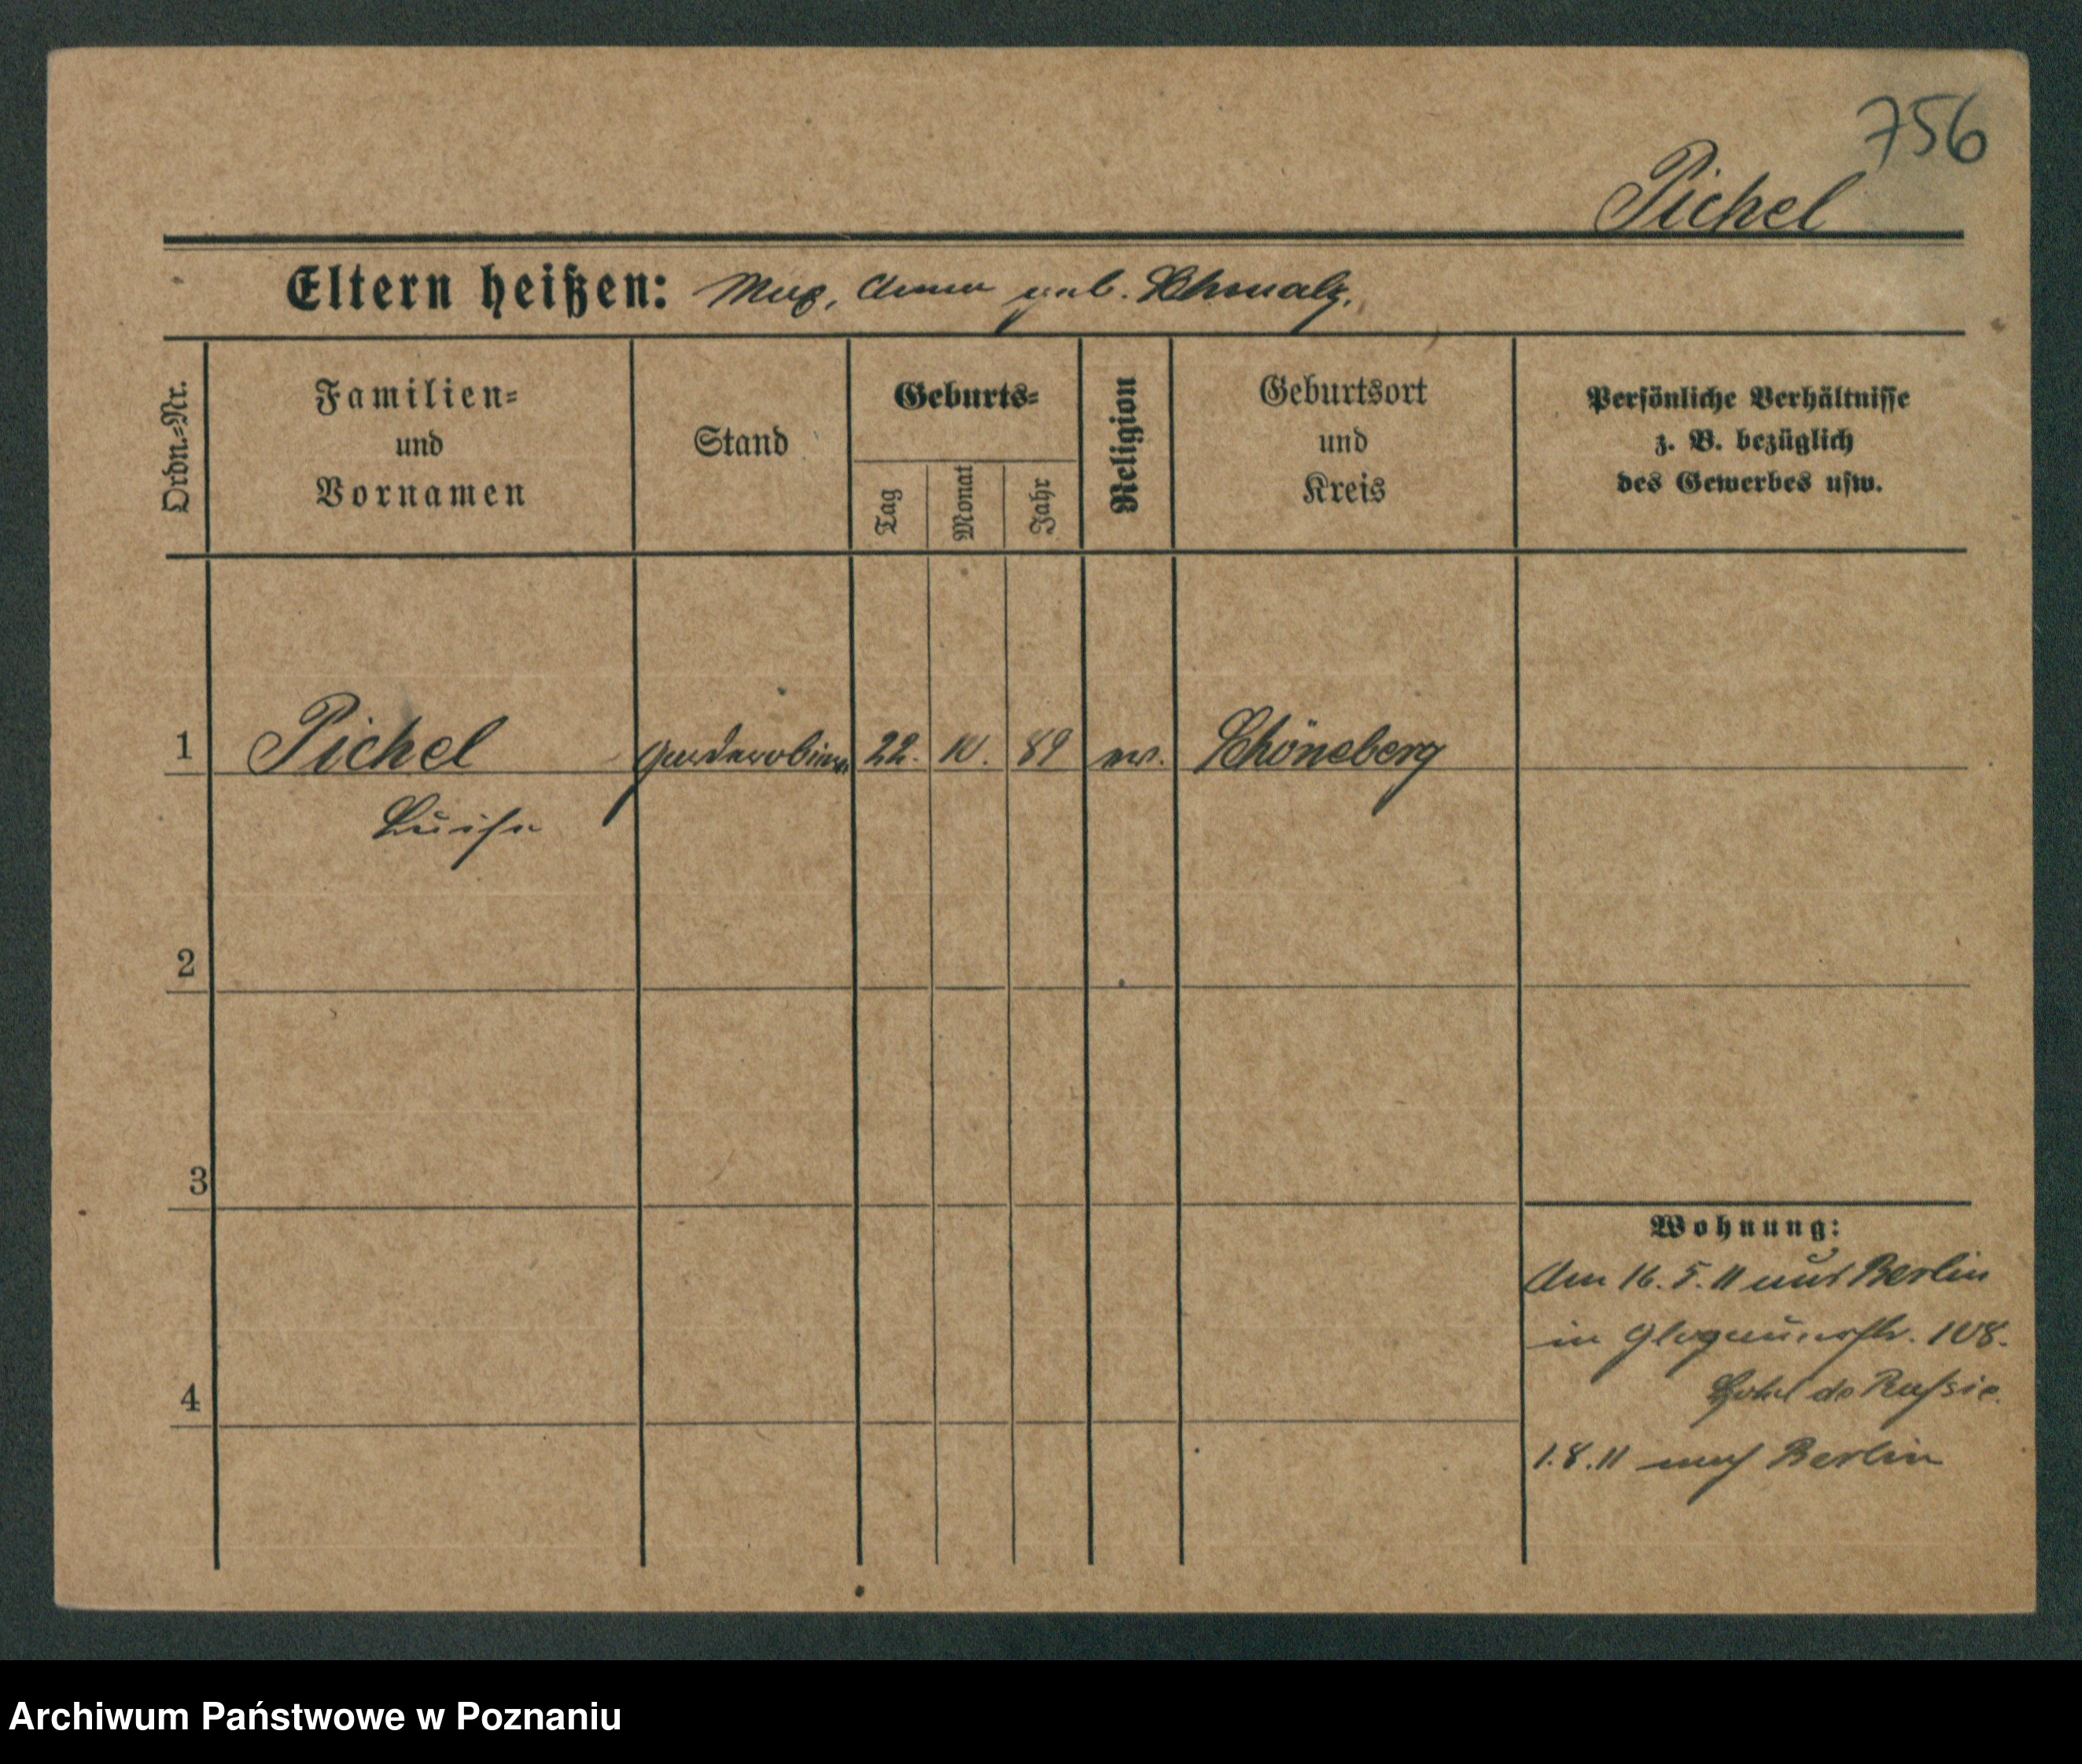 756
Pichel
Eltern heißen: Max, Anna geb. Schmalz.
Ordn.=Nr.
Familien=
und
Vornamen
Stand
Geburts=
Tag
Monat
Jahr
Religion
Geburtsort
und
Kreis
Persönliche Verhältnisse
z. B. bezüglich
des Gewerbes usw.
1 Pichel Garderobiere 22. 10. 89 ev. Schöneberg
Luise
2
3
4
Wohnung:
Am 16. 5. 11 aus Berlin
in Glogauerstr. 108.
Hotel de Russie.
1. 8. 11 nach Berlin
Archiwum Państwowe w Poznaniu